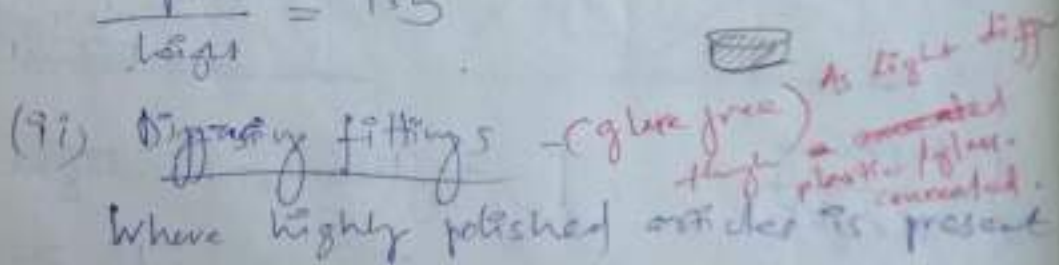 = 1.5
height
(ii) Diffusing fittings - (glare free) As light diff
through plastic / glass.
concealed.
Where highly polished articles is present